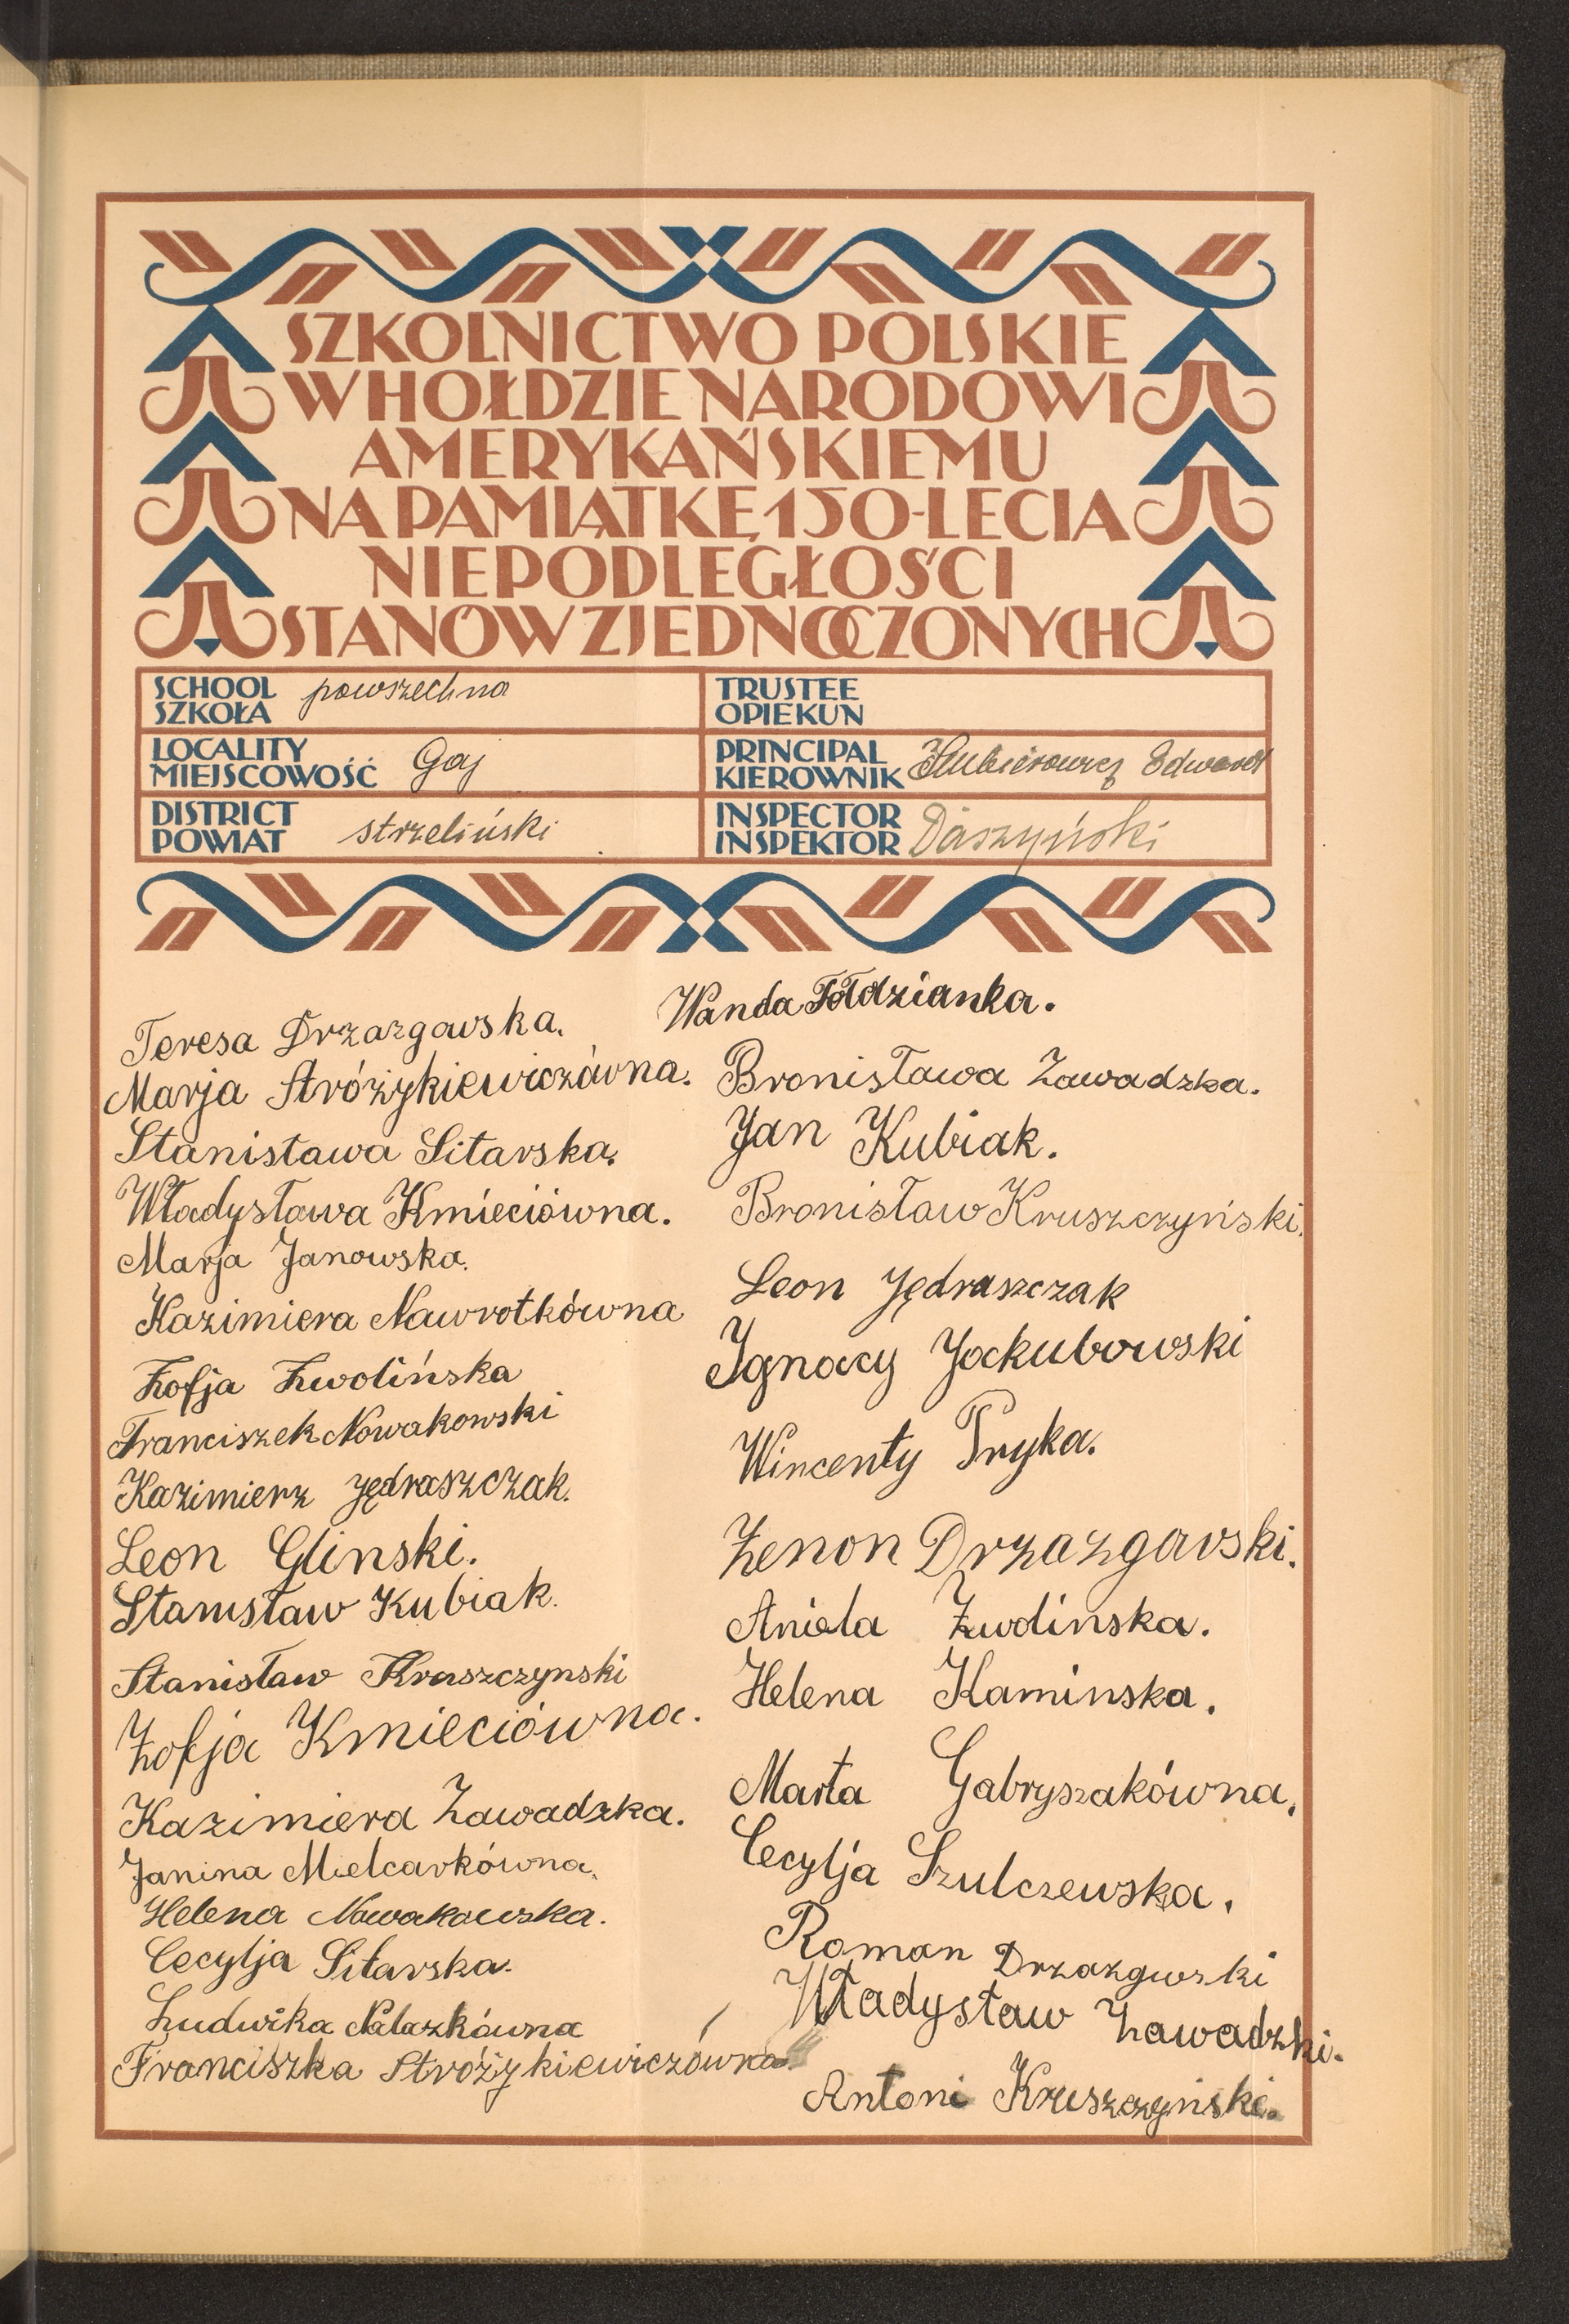 SZKOLNICTWO POLSKIE
W HOŁDZIE NARODOWI
AMERYKAŃSKIEMU
NA PAMIĄTKĘ 150-LECIA
NIEPODLEGŁOŚCI
STANÓW ZJEDNOCZONYCH
SCHOOL
SZKOŁA powszechna
TRUSTEE
OPIEKUN
LOCALITY
MIEJSCOWOŚĆ Gaj
PRINCIPAL
KIEROWNIK Edward
DISTRICT
POWIAT strzeliński
INSPECTOR
INSPEKTOR Daszyński
Teresa Drzazgowska.
Marja Stróżykiewiczówna.
Stanisława Sitarska.
Władysława Kmieciówna.
Marja Janowska.
Kazimiera Nawrotkówna
Zofja Zwolińska
Franciszek Nowakowski
Kazimierz Jędraszczak.
Leon Glinski.
Stanisław Kubiak.
Stanisław Kruszczynski
Zofja Kmieciówna.
Kazimiera Zawadzka.
Janina Mielcarkówna.
Helena Nowakowska.
Cecylja Sitarska.
Ludwika Nalazkówna
Franciszka Stróżykiewiczówna.
Wanda Fołdzianka.
Bronisława Zawadzka.
Jan Kubiak.
Bronisław Kruszczyński.
Leon Jędraszczak
Ignacy Jackubowski
Wincenty Pryka.
Zenon Drzazgowski.
Aniela Zwolinska.
Helena Kaminska.
Marta Gabryszakówna.
Cecylja Szulczewska.
Roman Drzazgowski
Władysław Zawadzki.
Antoni Kruszczyński.